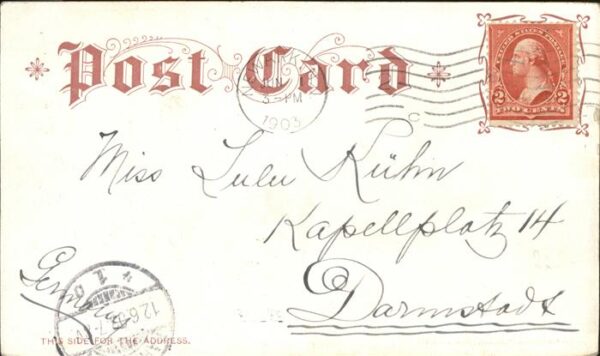 Post Card
UNITED STATES POSTAGE
2 2
TWO CENTS
5-PM
1903
Miss Lulu Kühn
Kapellplatz 14
Darmstadt
Germany
12.6.
THIS SIDE FOR THE ADDRESS.